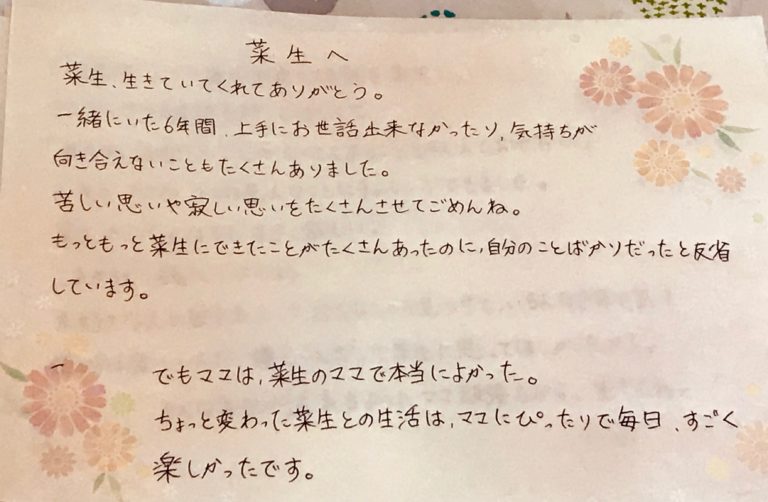 菜生へ
菜生、生きていてくれてありがとう。
一緒にいた6年間、上手にお世話出来なかったり、気持ちが
向き合えないこともたくさんありました。
苦しい思いや寂しい思いをたくさんさせてごめんね。
もっともっと菜生にできたことがたくさんあったのに、自分のことばかりだったと反省
しています。
でもママは、菜生のママで本当によかった。
ちょっと変わった菜生との生活は、ママにぴったりで毎日、すごく
楽しかったです。